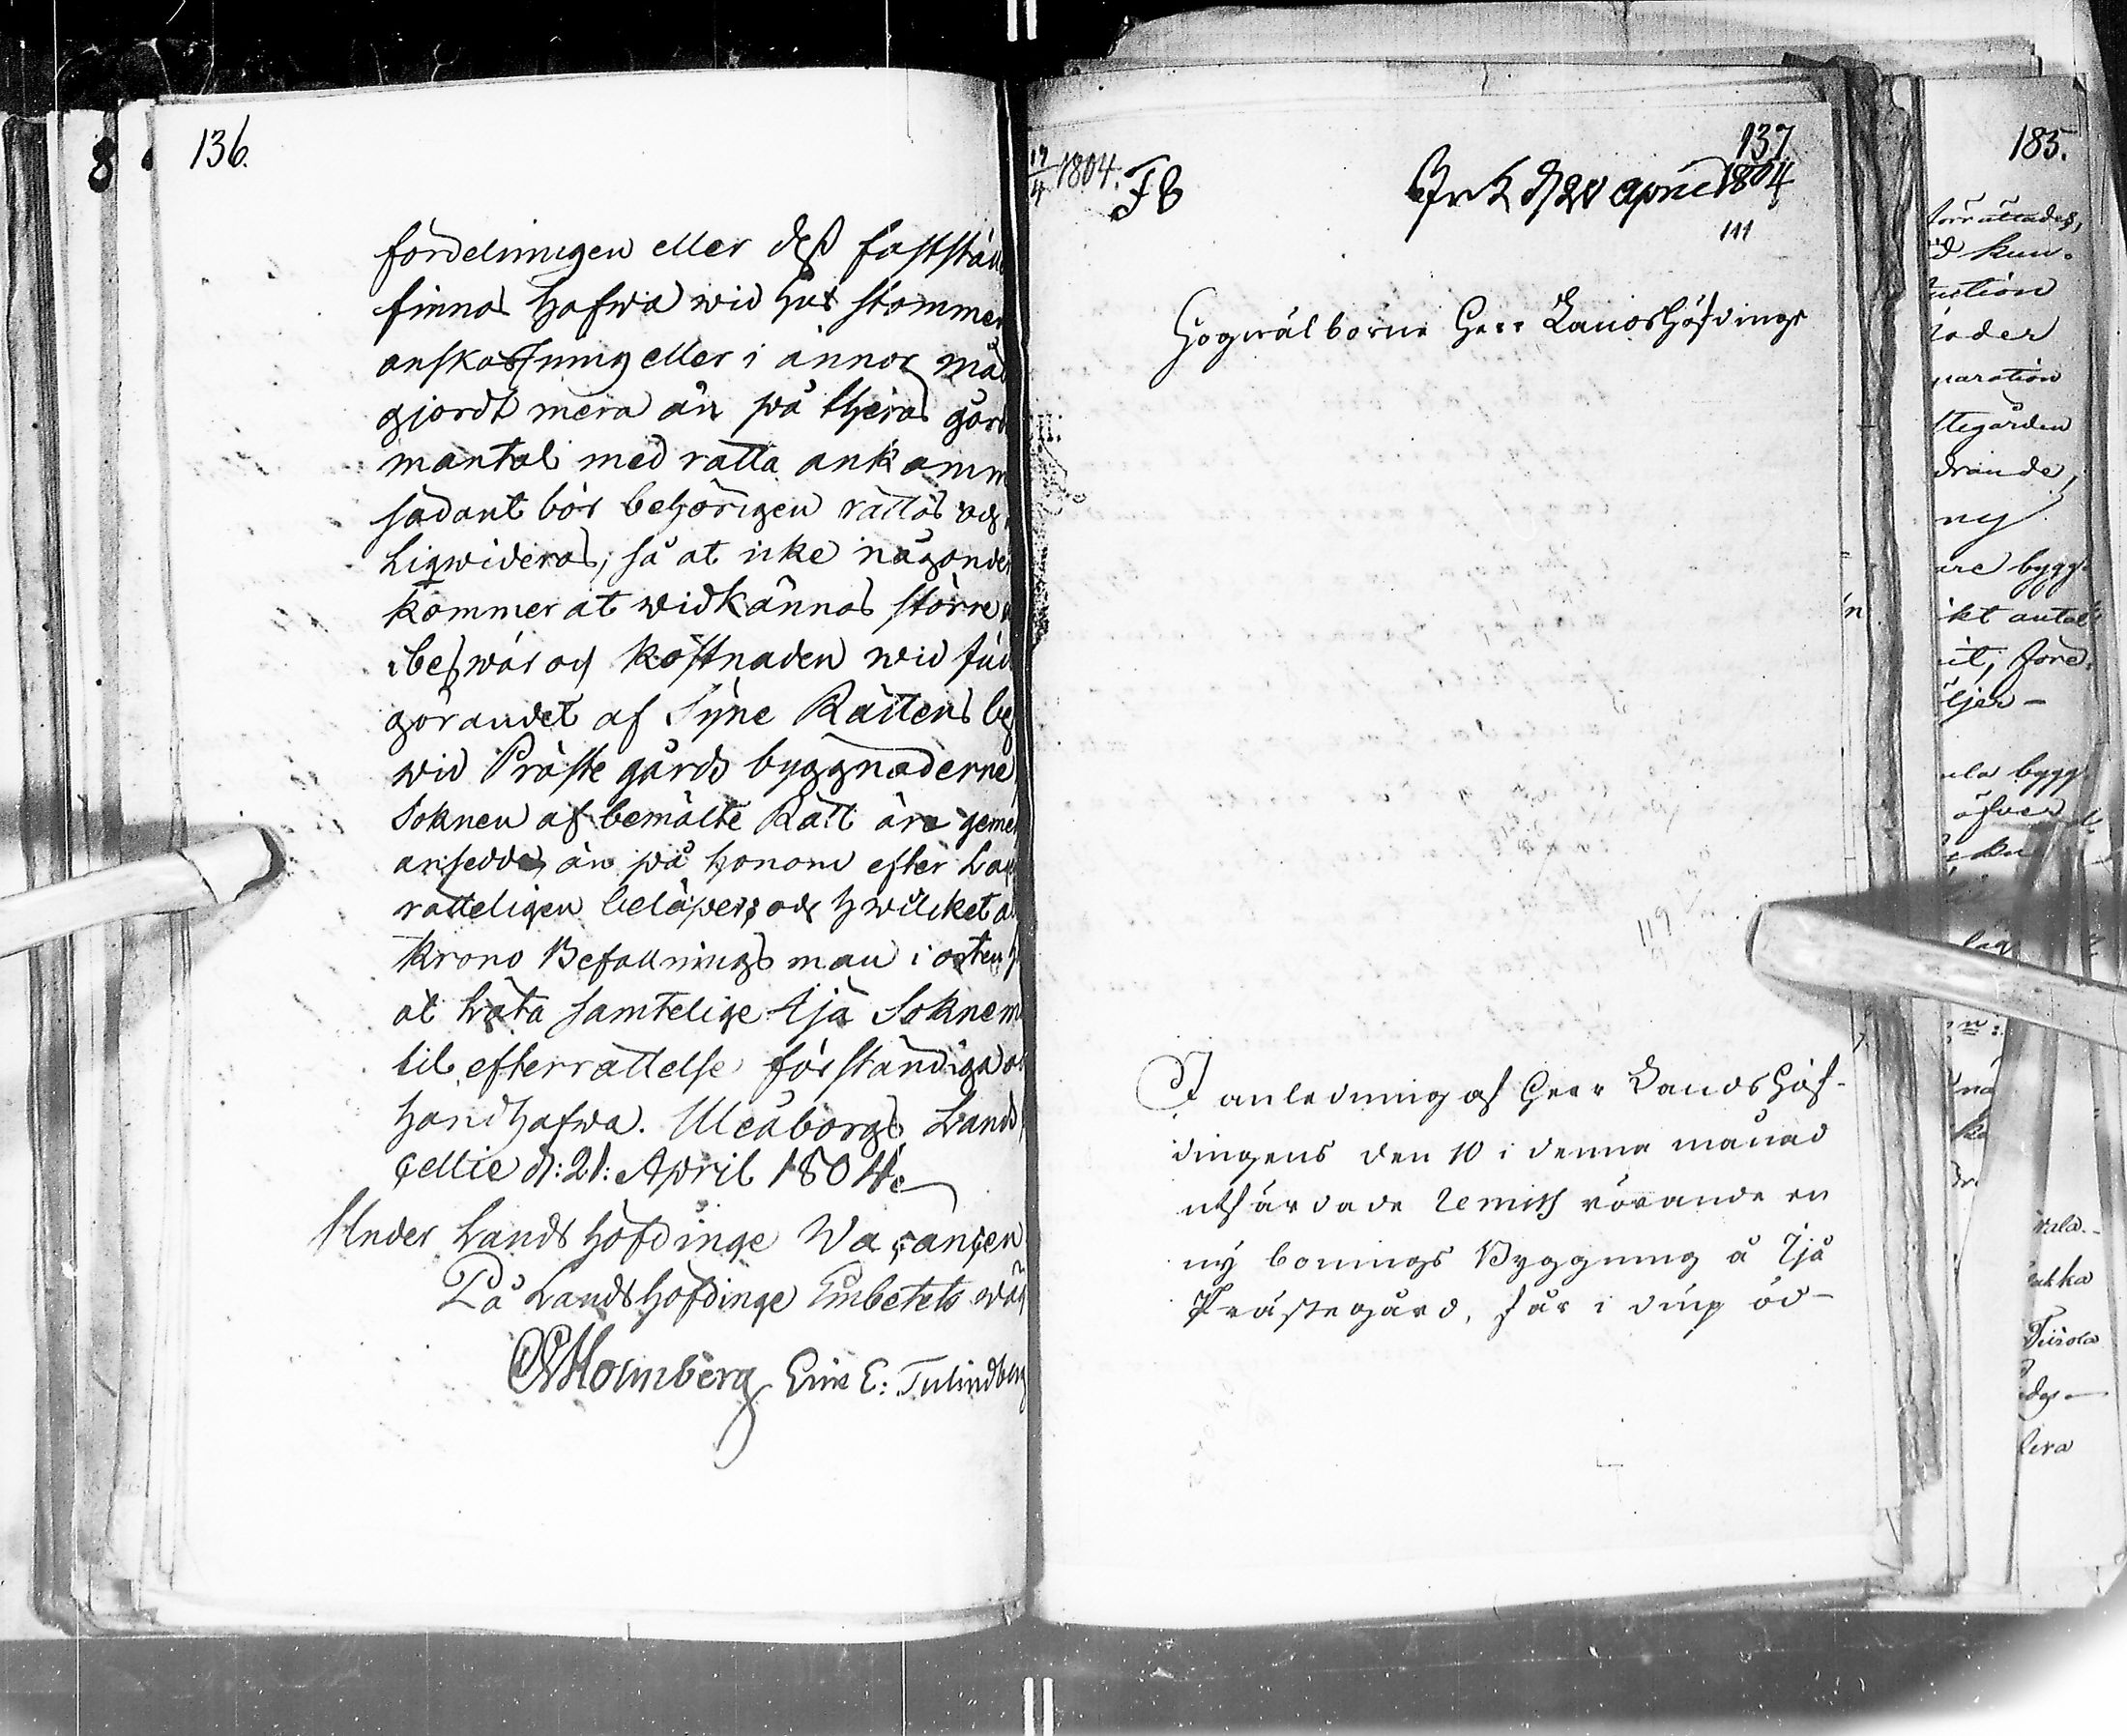 136.
fördelningen eller deß faststäl
finnas hafwa wid hus stommen
anskaffning eller i annor måt
gjordt mera än på theras gård
mantal med rätta ankomm
sådant bör behörigen rättas och
Liqwideras, så at icke någonder
kommer at widkännas större
beswär och kostnaden wid ful
görandet af Syne Rättens be
wid Präste gårds byggnaderne
Soknen af bemälte Rätt äre geme
ansedde, än på honom efter Lag
rätteligen belöper; och hwilcket a
Krono Befallnings man i orten
at låta samtelige Ijå Sokne m
til efterrättelse förständiga o
handhafwa. Uleåborgs Lands
Cellie d: 21: April 1804.
Under Lands höfdinge Vacancen
På Landshöfdinge Embetets wäg
Holmberg Eric E: Tulindberg
19/4 1804. FB
137
Ink d 20 april 1804
111
Högwälborne Herr Landshöfdinge
I anledning af Herr Landshöf-
dingens den 10 i denna månad
utfärdade Remiss rörande en
ny bonings Byggning å Ijå
Prästegård, får i diup öd-
185.
förrättades,
d kun-
tution
åder
paration
stegården
drande,
ny
are bygg-
kt antal
it, före-
ljer -
ela bygg
öfver
Tiirola